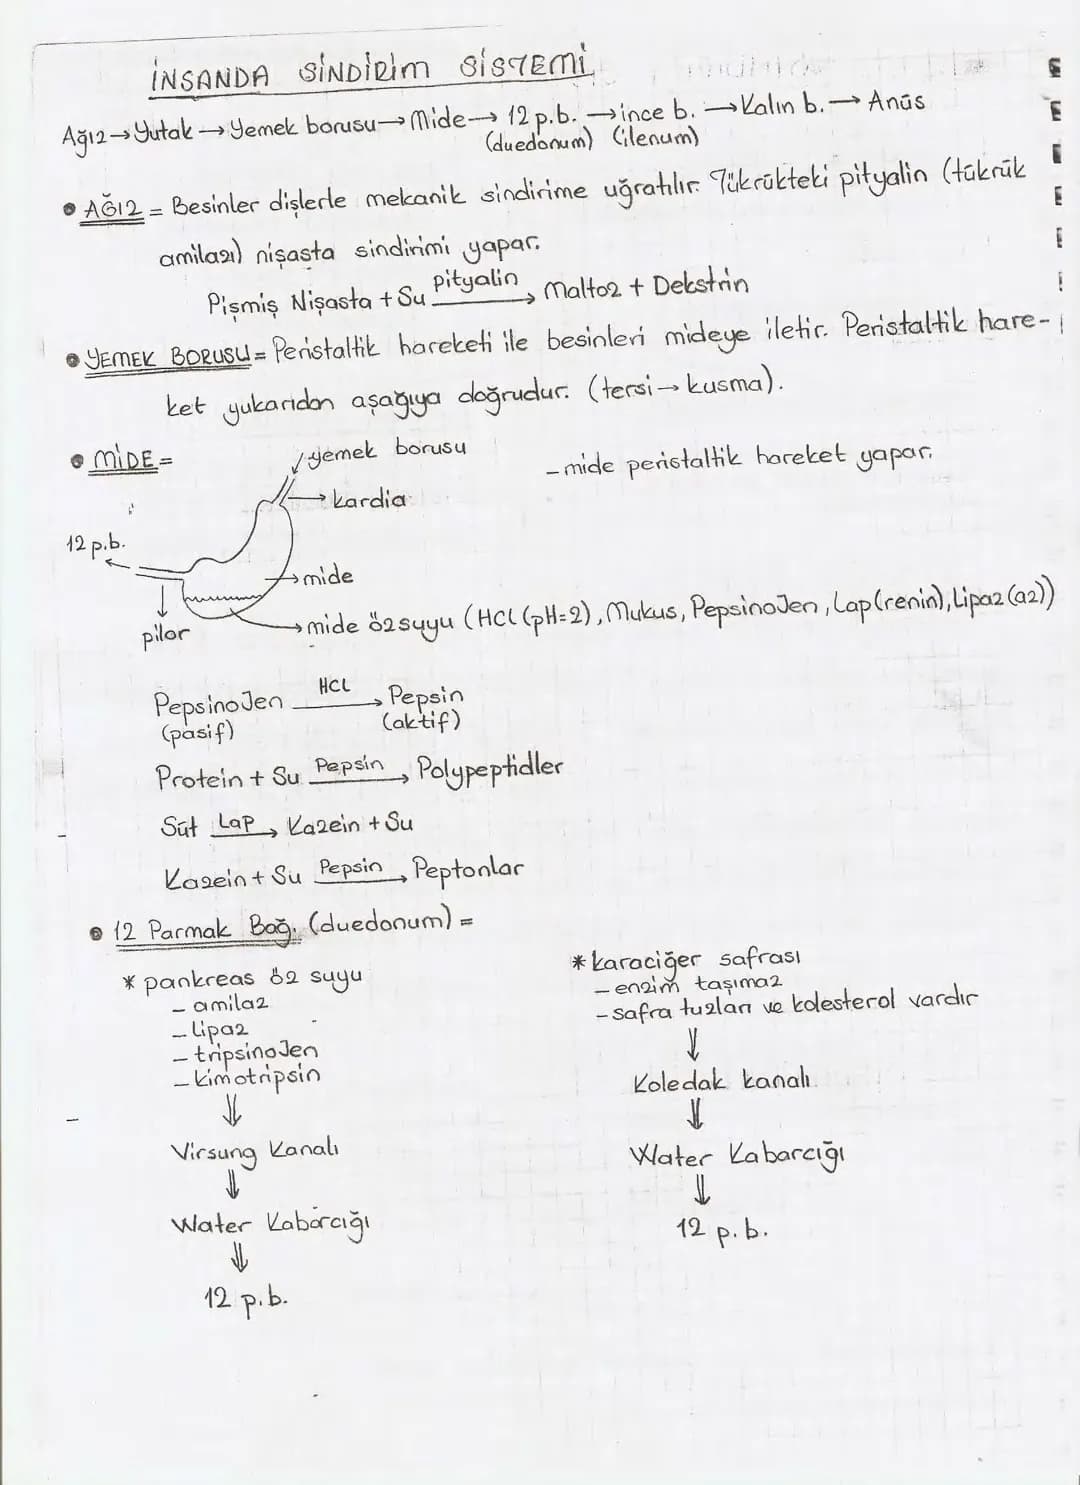 İNSANDA SİNDİRİM SİSTEMİ
Ağız→Yutak→Yemek borusu→Mide→ 12 p.b. →ince b. →Kalın b.→ Anüs
(duedonum) (ilenum)
• AĞIZ = Besinler dişlerle mekanik sindirime uğratılır. Tükrükteki pityalin (tükrük
amilazı) nişasta sindirimi yapar.
Pişmiş Nişasta + Su Pityalin→ Maltoz + Dekstrin
• YEMEK BORUSU = Peristaltik hareketi ile besinleri mideye iletir. Peristaltik hare-
ket yukarıdan aşağıya doğrudur. (tersi→ kusma).
• MİDE =
yemek borusu
- mide peristaltik hareket yapar.
→kardia
12 p.b.
→mide
→mide özsuyu (HCL (pH=2), Mukus, PepsinoJen, Lap(renin), Lipaz (az))
pilor
PepsinoJen HCL→ Pepsin
(pasif) (aktif)
Protein + Su Pepsin→ Polypeptidler
Süt Lap→ Kazein + Su
Kazein + Su Pepsin→ Peptonlar
• 12 Parmak Bağ. (duedonum) =
* pankreas öz suyu
- amilaz
- lipaz
- tripsinoJen
- kimotripsin
⇓
Virsung Kanalı
⇓
Water Kabarcığı
⇓
12 p.b.
* karaciğer safrası
- enzim taşımaz
- safra tuzları ve kolesterol vardır
⇓
Koledak kanalı
⇓
Water Kabarcığı
⇓
12 p.b.